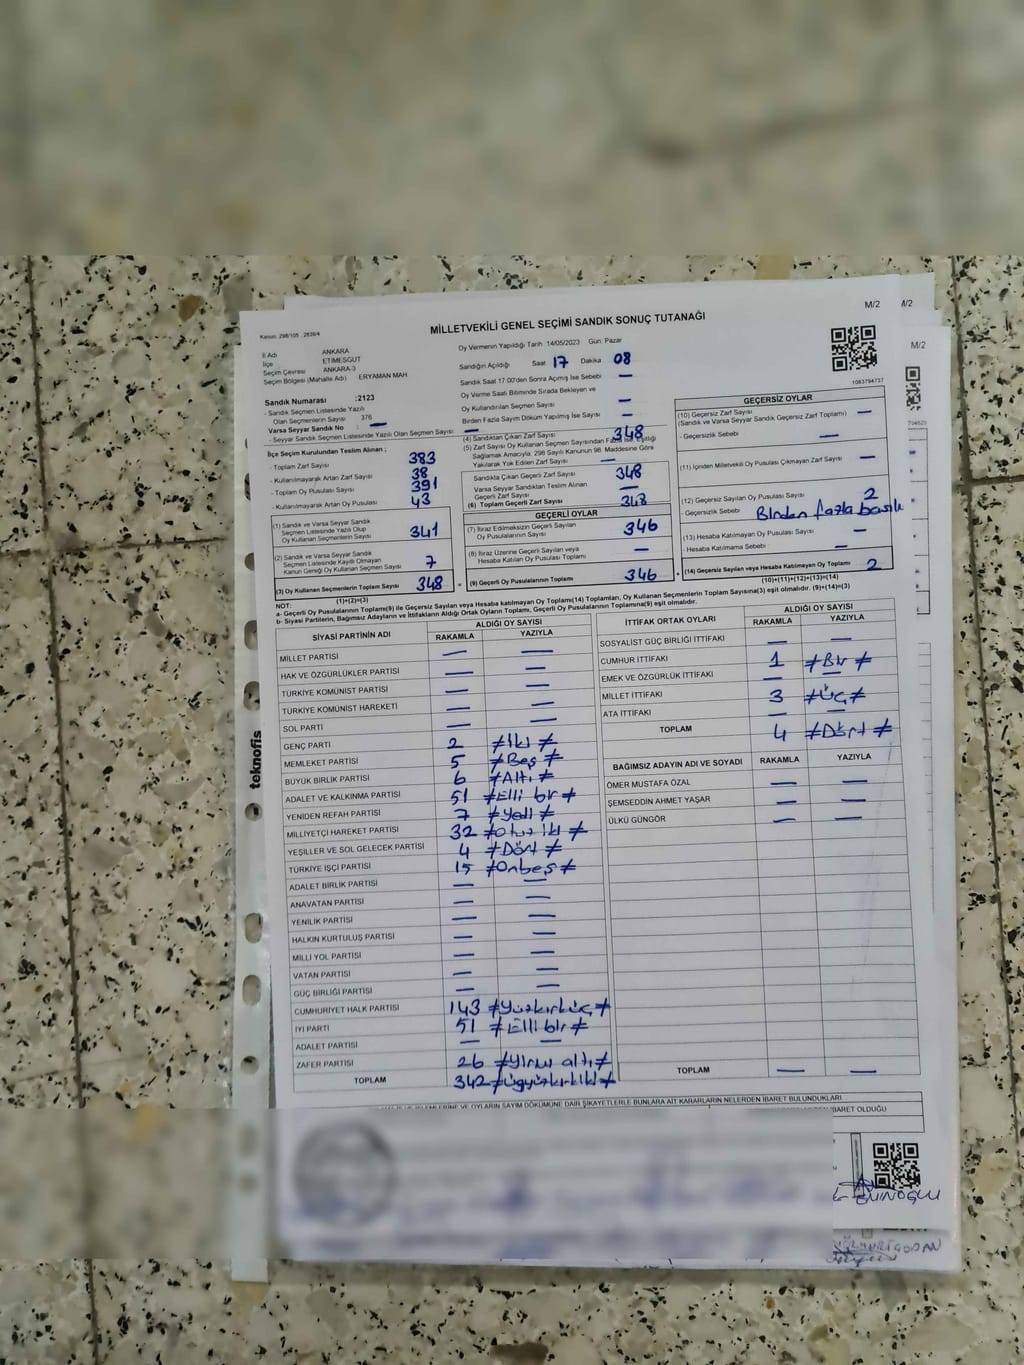 M/2
M/2
M/2
Kanun: 298/105 , 2839/4
MİLLETVEKİLİ GENEL SEÇİMİ SANDIK SONUÇ TUTANAĞI
İl Adı ANKARA
İlçe ETİMESGUT
Seçim Çevresi ANKARA-3
Seçim Bölgesi (Mahalle Adı) ERYAMAN MAH
Sandık Numarası :2123
- Sandık Seçmen Listesinde Yazılı
Olan Seçmenlerin Sayısı 376
Varsa Seyyar Sandık No : —
- Seyyar Sandık Seçmen Listesinde Yazılı Olan Seçmen Sayısı —
İlçe Seçim Kurulundan Teslim Alınan ;
- Toplam Zarf Sayısı 383
- Kullanılmayarak Artan Zarf Sayısı 38
- Toplam Oy Pusulası Sayısı 391
- Kullanılmayarak Artan Oy Pusulası 43
(1) Sandık ve Varsa Seyyar Sandık
Seçmen Listesinde Yazılı Olup
Oy Kullanan Seçmenlerin Sayısı 341
(2) Sandık ve Varsa Seyyar Sandık
Seçmen Listesinde Kayıtlı Olmayan
Kanun Gereği Oy Kullanan Seçmen Sayısı 7
(3) Oy Kullanan Seçmenlerin Toplam Sayısı 348
(1)+(2)=(3)
Oy Vermenin Yapıldığı Tarih 14/05/2023 Gün: Pazar
Sandığın Açıldığı Saat 17 Dakika 08
Sandık Saat 17.00'den Sonra Açılmış İse Sebebi —
Oy Verme Saati Bitiminde Sırada Bekleyen ve
Oy Kullandırılan Seçmen Sayısı —
Birden Fazla Sayım Döküm Yapılmış İse Sayısı —
(4) Sandıktan Çıkan Zarf Sayısı 348
(5) Zarf Sayısı Oy Kullanan Seçmen Sayısından Fazla İse Eşitliği
Sağlamak Amacıyla, 298 Sayılı Kanunun 98. Maddesine Göre
Yakılarak Yok Edilen Zarf Sayısı —
Sandıkta Çıkan Geçerli Zarf Sayısı 348
Varsa Seyyar Sandıktan Teslim Alınan
Geçerli Zarf Sayısı —
(6) Toplam Geçerli Zarf Sayısı 348
GEÇERLİ OYLAR
(7) İtiraz Edilmeksizin Geçerli Sayılan
Oy Pusulalarının Sayısı 346
(8) İtiraz Üzerine Geçerli Sayılan veya
Hesaba Katılan Oy Pusulası Toplamı —
= (9) Geçerli Oy Pusulalarının Toplamı 346 +
1083794737
GEÇERSİZ OYLAR
(10) Geçersiz Zarf Sayısı —
(Sandık ve Varsa Seyyar Sandık Geçersiz Zarf Toplamı)
- Geçersizlik Sebebi —
(11) İçinden Milletvekili Oy Pusulası Çıkmayan Zarf Sayısı —
(12) Geçersiz Sayılan Oy Pusulası Sayısı 2
- Geçersizlik Sebebi Birden fazla baskılı
(13) Hesaba Katılmayan Oy Pusulası Sayısı —
Hesaba Katılmama Sebebi —
(14) Geçersiz Sayılan veya Hesaba Katılmayan Oy Toplamı 2
(10)+(11)+(12)+(13)=(14)
NOT:
a- Geçerli Oy Pusulalarının Toplamı(9) ile Geçersiz Sayılan veya Hesaba katılmayan Oy Toplamı(14) Toplamları, Oy Kullanan Seçmenlerin Toplam Sayısına(3) eşit olmalıdır. (9)+(14)=(3)
b- Siyasi Partilerin, Bağımsız Adayların ve İttifakların Aldığı Ortak Oyların Toplamı, Geçerli Oy Pusulalarının Toplamına(9) eşit olmalıdır.
SİYASİ PARTİNİN ADI ALDIĞI OY SAYISI
RAKAMLA YAZIYLA
MİLLET PARTİSİ — —
HAK VE ÖZGÜRLÜKLER PARTİSİ — —
TÜRKİYE KOMÜNİST PARTİSİ — —
TÜRKİYE KOMÜNİST HAREKETİ — —
SOL PARTİ — —
GENÇ PARTİ 2 ≠İki≠
MEMLEKET PARTİSİ 5 ≠Beş≠
BÜYÜK BİRLİK PARTİSİ 6 ≠Altı≠
ADALET VE KALKINMA PARTİSİ 51 ≠Elli bir≠
YENİDEN REFAH PARTİSİ 7 ≠Yedi≠
MİLLİYETÇİ HAREKET PARTİSİ 32 ≠Otuz iki≠
YEŞİLLER VE SOL GELECEK PARTİSİ 4 ≠Dört≠
TÜRKİYE İŞÇİ PARTİSİ 15 ≠Onbeş≠
ADALET BİRLİK PARTİSİ — —
ANAVATAN PARTİSİ — —
YENİLİK PARTİSİ — —
HALKIN KURTULUŞ PARTİSİ — —
MİLLİ YOL PARTİSİ — —
VATAN PARTİSİ — —
GÜÇ BİRLİĞİ PARTİSİ — —
CUMHURİYET HALK PARTİSİ 143 ≠Yüzkırküç≠
İYİ PARTİ 51 ≠Elli bir≠
ADALET PARTİSİ — —
ZAFER PARTİSİ 26 ≠Yirmi altı≠
TOPLAM 342 ≠üçyüzkırkiki≠
İTTİFAK ORTAK OYLARI ALDIĞI OY SAYISI
RAKAMLA YAZIYLA
SOSYALİST GÜÇ BİRLİĞİ İTTİFAKI — —
CUMHUR İTTİFAKI 1 ≠Bir≠
EMEK VE ÖZGÜRLÜK İTTİFAKI — —
MİLLET İTTİFAKI 3 ≠Üç≠
ATA İTTİFAKI — —
TOPLAM 4 ≠Dört≠
BAĞIMSIZ ADAYIN ADI VE SOYADI RAKAMLA YAZIYLA
ÖMER MUSTAFA ÖZAL — —
ŞEMSEDDİN AHMET YAŞAR — —
ÜLKÜ GÜNGÖR — —
TOPLAM — —
teknofis
OYLARIN SAYIM DÖKÜMÜNE DAİR ŞİKAYETLERLE BUNLARA AİT KARARLARIN NELERDEN İBARET BULUNDUKLARI
İBARET OLDUĞU